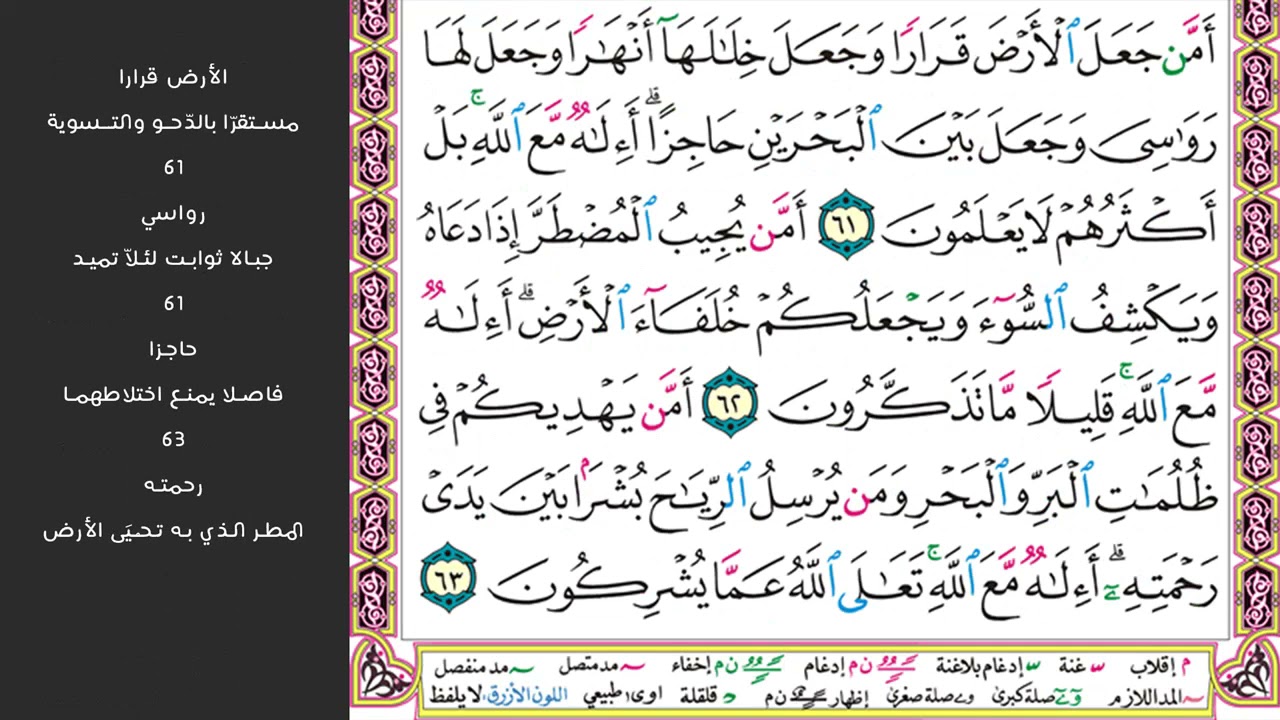 أَمَّن جَعَلَ ٱلْأَرْضَ قَرَارًا وَجَعَلَ خِلَٰلَهَآ أَنْهَٰرًا وَجَعَلَ لَهَا
رَوَٰسِىَ وَجَعَلَ بَيْنَ ٱلْبَحْرَيْنِ حَاجِزًا ۗ أَءِلَٰهٌ مَّعَ ٱللَّهِ ۚ بَلْ
أَكْثَرُهُمْ لَا يَعْلَمُونَ ٦١ أَمَّن يُجِيبُ ٱلْمُضْطَرَّ إِذَا دَعَاهُ
وَيَكْشِفُ ٱلسُّوٓءَ وَيَجْعَلُكُمْ خُلَفَآءَ ٱلْأَرْضِ ۗ أَءِلَٰهٌ
مَّعَ ٱللَّهِ ۚ قَلِيلًا مَّا تَذَكَّرُونَ ٦٢ أَمَّن يَهْدِيكُمْ فِى
ظُلُمَٰتِ ٱلْبَرِّ وَٱلْبَحْرِ وَمَن يُرْسِلُ ٱلرِّيَٰحَ بُشْرًۢا بَيْنَ يَدَىْ
رَحْمَتِهِۦٓ ۗ أَءِلَٰهٌ مَّعَ ٱللَّهِ ۚ تَعَٰلَى ٱللَّهُ عَمَّا يُشْرِكُونَ ٦٣
م إقلاب غنة إدغام بلاغنة ن م إدغام ن م إخفاء مد متصل مد منفصل
المد اللازم صلة كبرى صلة صغرى إظهار ن م قلقلة اوى طبيعي اللون الأزرق، لا يلفظ
الأرض قرارا
مستقرّا بالدّحو والتسوية
61
رواسي
جبالا ثوابت لئلاّ تميد
61
حاجزا
فاصلا يمنع اختلاطهما
63
رحمته
المطر الذي به تحيَى الأرض